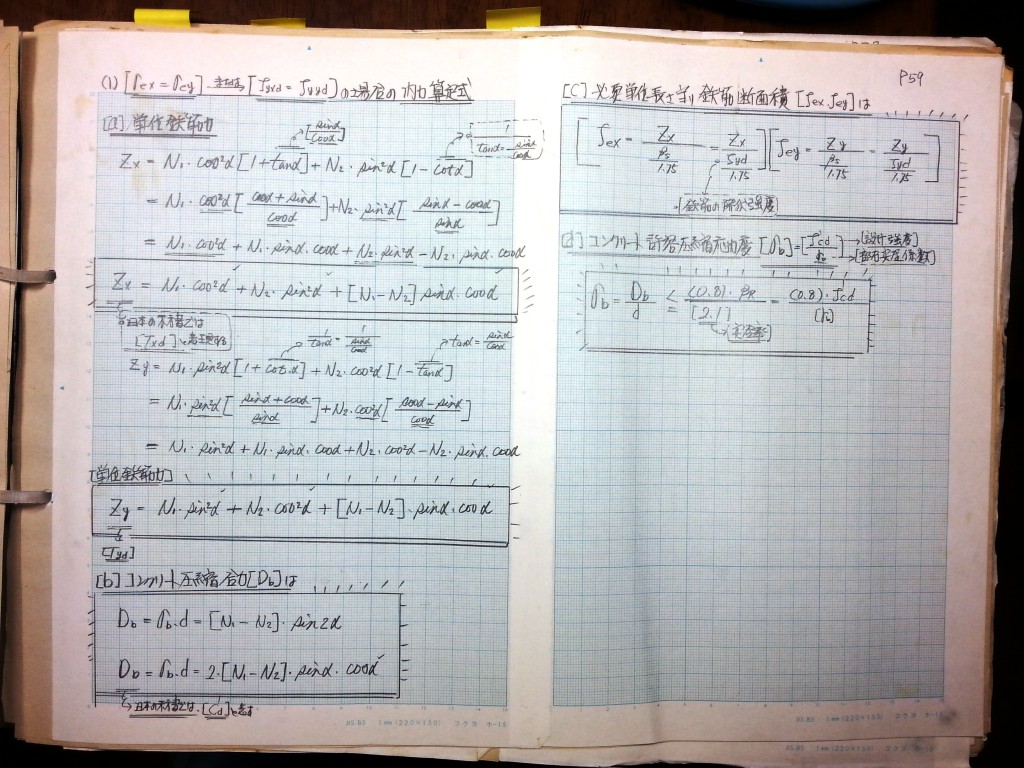 (1) [σex = σey] または [Tyxd = Tyyd] の場合の内力算定式
[a] 単位鉄筋力
[sinα/cosα]
1/tanα = sinα/cosα
Zx = N₁·cos²α [1+tanα] + N₂·sin²α [1-cotα]
= N₁·cos²α [(cosα+sinα)/cosα] + N₂·sin²α [(sinα-cosα)/sinα]
= N₁·cos²α + N₁·sinα·cosα + N₂·sin²α - N₂·sinα·cosα
Zx = N₁·cos²α + N₂·sin²α + [N₁-N₂] sinα·cosα
日本の本書では
[Txd]
1/tanα = 1/(sinα/cosα)
tanα = sinα/cosα
Zy = N₁·sin²α [1+cot·α] + N₂·cos²α [1-tanα]
= N₁·sin²α [(sinα+cosα)/sinα] + N₂·cos²α [(cosα-sinα)/cosα]
= N₁·sin²α + N₁·sinα·cosα + N₂·cos²α - N₂·sinα·cosα
[単位鉄筋力]
Zy = N₁·sin²α + N₂·cos²α + [N₁-N₂]·sinα·cosα
[Tyd]
[b] コンクリート圧縮合力 [Db] は
Db = σb·d = [N₁-N₂]·sin2α
Db = σb·d = 2·[N₁-N₂]·sinα·cosα
→日本の本書では、[Cd]と表す
JIS.B5 1㎜(220×150) コクヨ ホ-15
P59
[C] 必要単位長さ当り鉄筋断面積 [fex, fey] は
[fex = Zx/(βs/1.75) = Zx/(fyd/1.75)] [fey = Zy/(βs/1.75) = Zy/(fyd/1.75)]
鉄筋の降伏強度
[d] コンクリート許容圧縮応力度 [σb] = [fcd/k] →[設計強度]
→[部材安全係数]
σb = Db/d ≤ (0.8)·βR/[2.1] = (0.8)·fcd/[k]
→[安全率]
JIS.B5 1㎜(220×150) コクヨ ホ-15
JIS.B5 1㎜(220×150) コクヨ